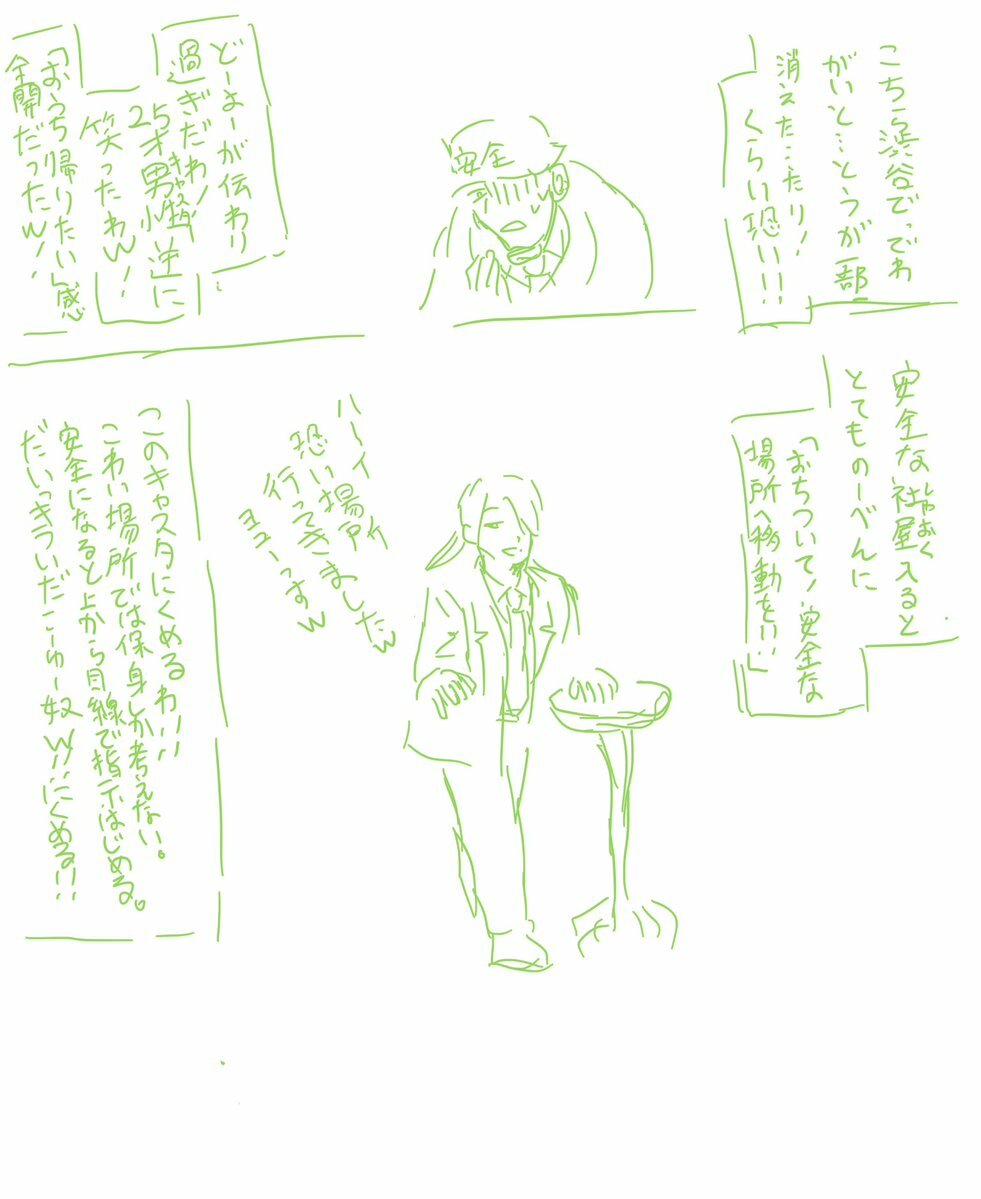 こちら渋谷でっでわ
がいと…とうが一部
消えた…たり！
くらい恐い!!!
安全
どーよーが伝わり
過ぎだわ！
25才男キャスター逆に
笑ったわw！
「おうち帰りたい」感
全開だったw！！
安全な社屋入ると
しゃおく
とてものーべんに
「おちついて！安全な
場所へ移動をい…」
ハーイ
恐い場所
行ってきましたw
ヨユーっすw
このキャスタにくめるわ!!!
こわい場所では保身しか考えない。
安全になると上から目線で指示はじめる。
だいっきらいだこーゆー奴w!!にくめる!!!